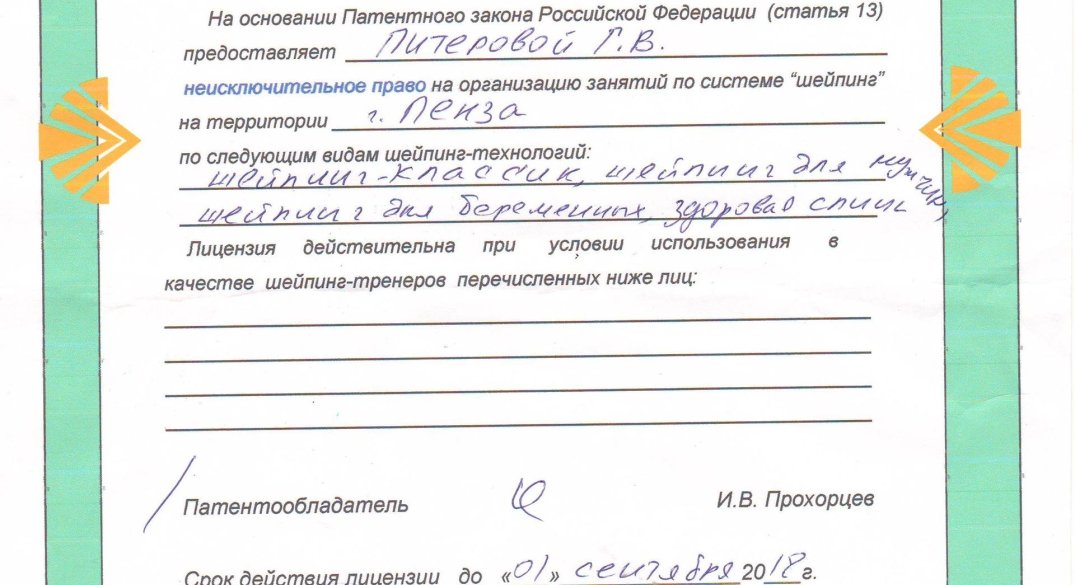 На основании Патентного закона Российской Федерации (статья 13)
предоставляет Питеровой Г.В.
неисключительное право на организацию занятий по системе “шейпинг”
на территории г. Пенза
по следующим видам шейпинг-технологий:
шейпинг-классик, шейпинг для мужчин,
шейпинг для беременных, здоровая спина
Лицензия действительна при условии использования в
качестве шейпинг-тренеров перечисленных ниже лиц:
Патентообладатель И.В. Прохорцев
Срок действия лицензии до «01» сентября 2018г.